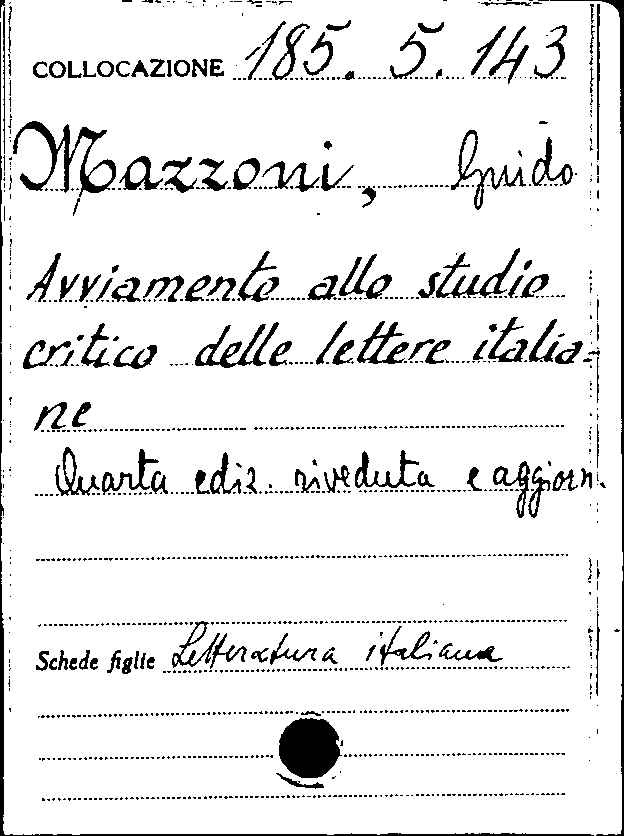 COLLOCAZIONE 185. 5. 143
Mazzoni, Guido
Avviamento allo studio
critico delle lettere italia=
ne
Quarta ediz. riveduta e aggiorn.
Schede figlie Letteratura italiana